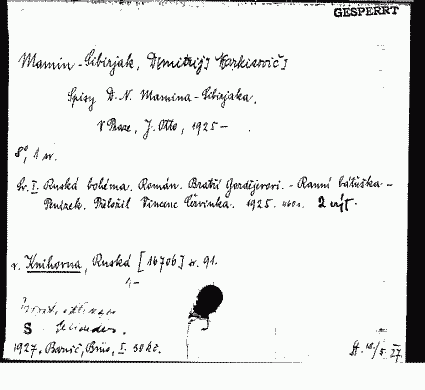 GESPERRT
Mamin-Sibirjak, Dmitrij Narkisovič]
Spisy D. N. Mamina-Sibirjaka.
V Praze, J. Otto, 1925 —
8°, 1 sv.
Sv. I. Ruská bohéma. Román. Bratří Gordějevové. - Ranní bátuška -
Peníze. Přeložil Vincenc Červinka. 1925. 2 výt.
v. Knihovna, Ruská [16706] sv. 91.
S
1927. Barvič, Brno, I. 30 Kč.
5. 27.